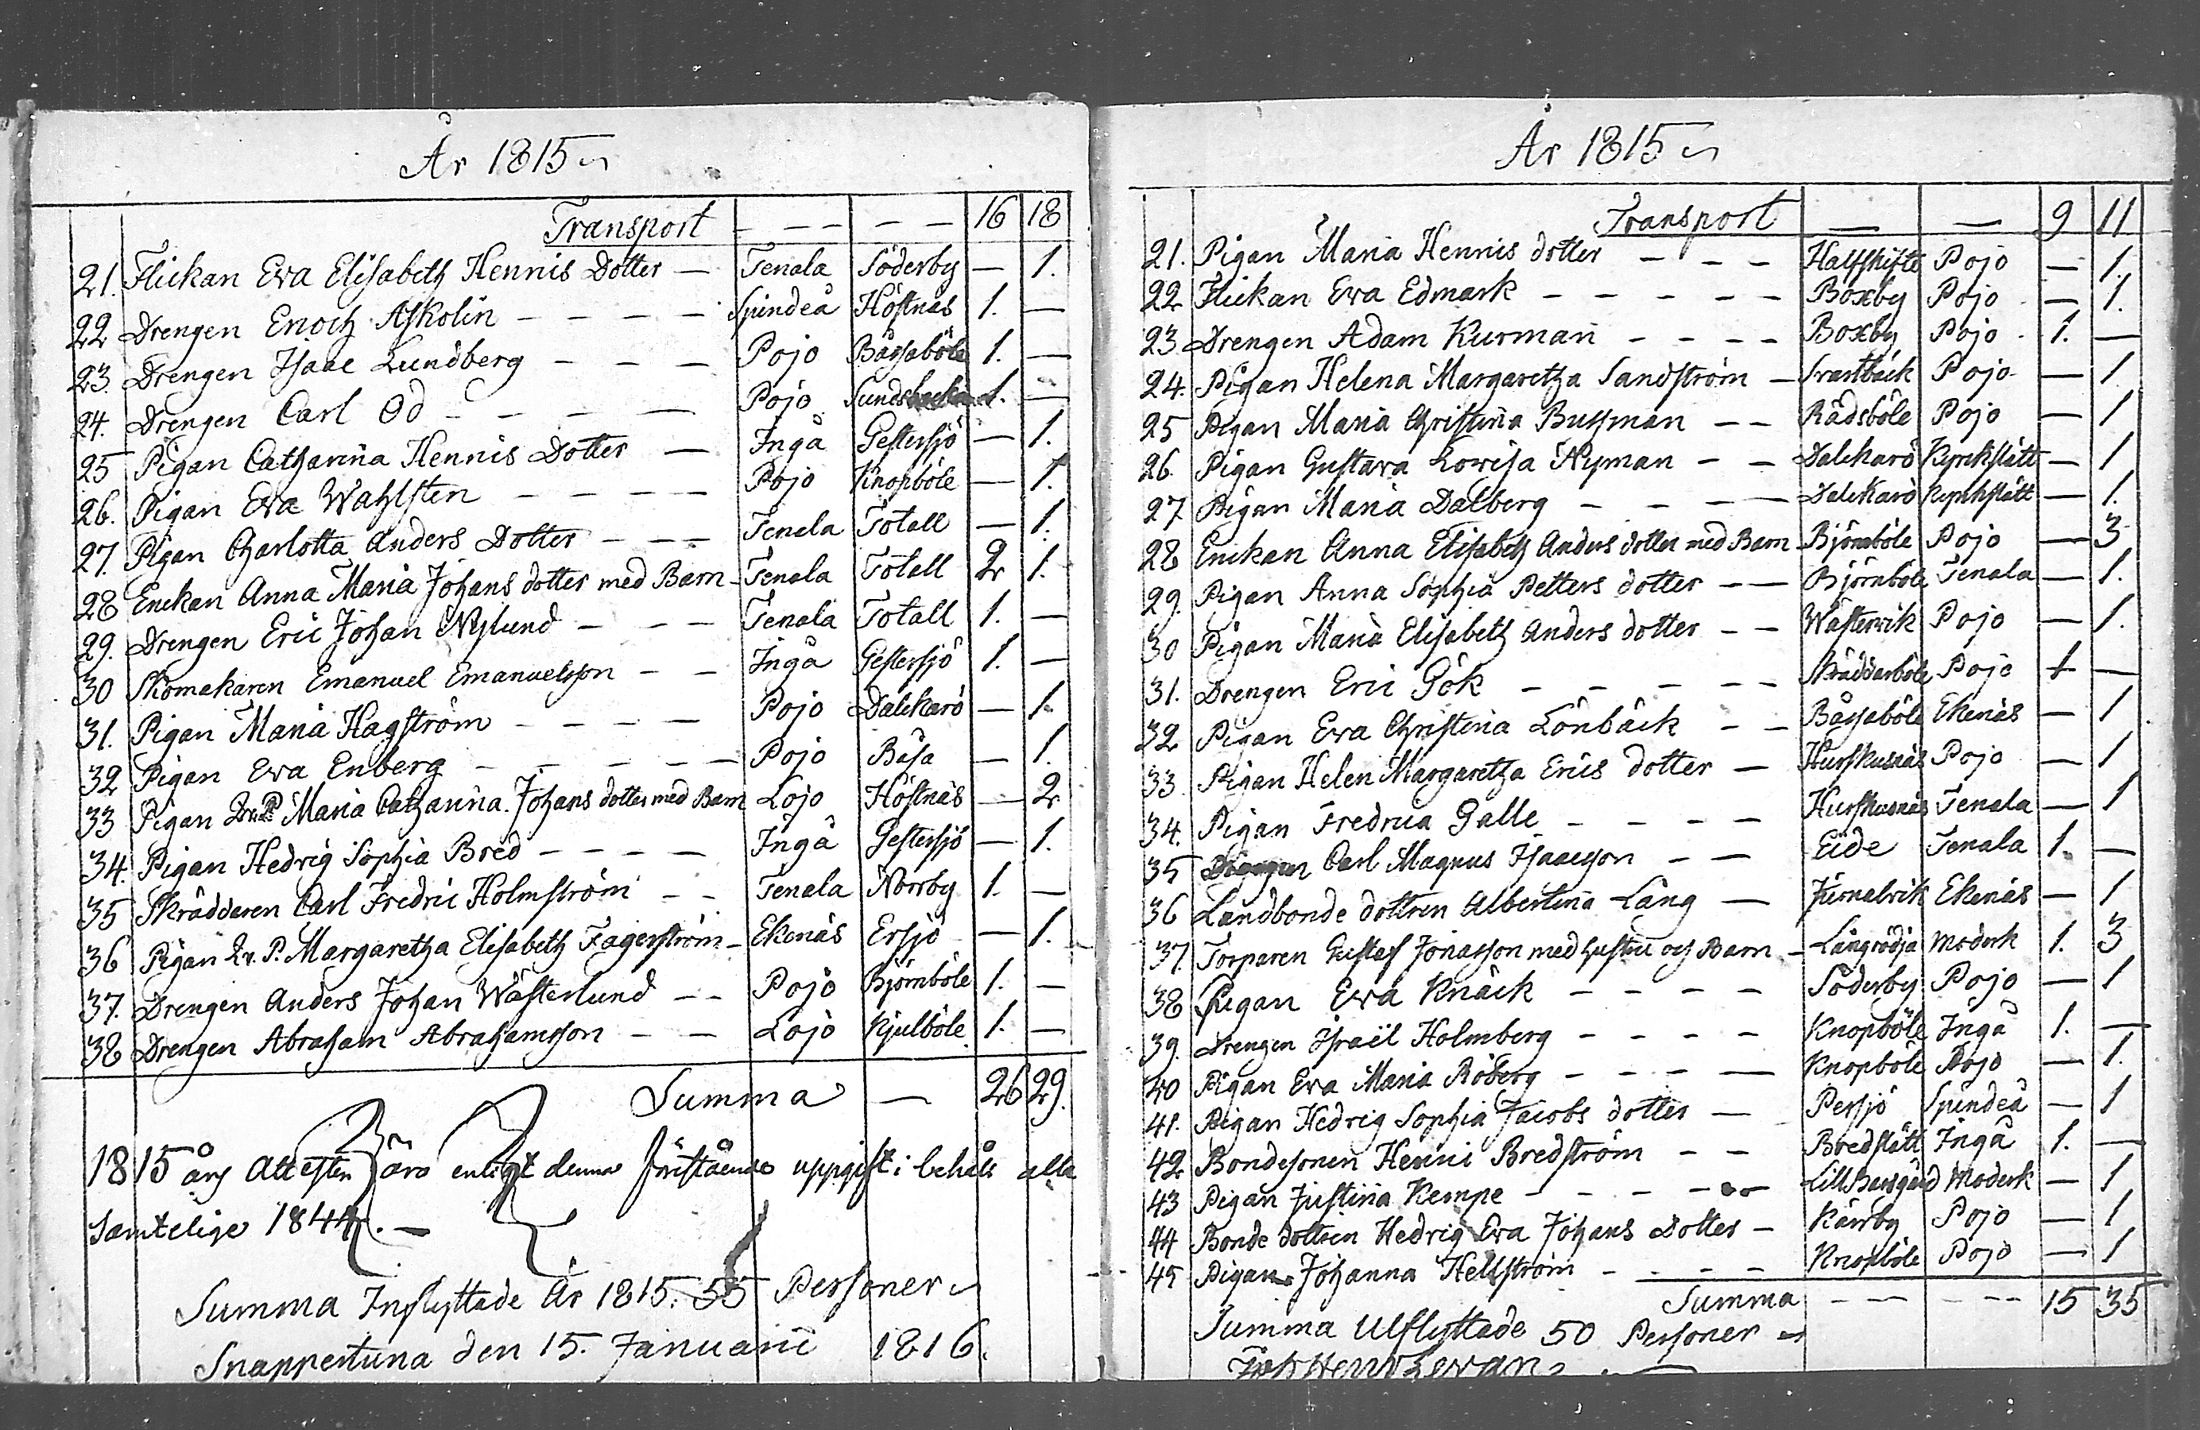 År 1815
Transport — — — — — 16 18
21. Flickan Eva Elisabeth Hennis Dotter — Tenala Söderby — 1.
22 Drengen Enoch Askolin — — — — Spindeå Höstnäs 1. —
23. Drengen Isaac Lundberg — — — Pojo Båssaböle 1. —
24. Drengen Carl Öd — — — — Pojo 1. —
25 Pigan Catharina Hennis Dotter — Ingå Gestersjö — 1.
26. Pigan Eva Wahlsten — — — — Pojo Knopböle — 1.
27. Pigan Charlotta Anders Dotter — — — Tenala Totall — 1.
28 Enckan Anna Maria Johans dotter med Barn — Tenala Totall 2 1.
29. Drengen Eric Johan Nylund — — — Tenala Totall 1. —
30 Skomakaren Emanuel Emanuelsson — — Ingå Gestersjö 1. —
31. Pigan Maria Hagström — — — — Pojo Dalckarö — 1.
32 Pigan Eva Enberg — — — — — Pojo Båsa — 1.
33 Pigan Qv. P. Maria Catharina Johans dotter med Barn Lojo Höstnäs — 2
34. Pigan Hedvig Sophia Bred — — — — Ingå Gestersjö — 1.
35 Skräddaren Carl Fredric Holmström — — Tenala Norrby 1. —
36 Pigan Qv. P. Margaretha Elisabeth Fagerström — Ekenäs Ersjö — 1.
37. Drengen Anders Johan Wästerlund — — Pojo Björnböle 1. —
38 Drengen Abraham Abrahamsson — — Lojo Kjulböle 1. —
Summa — 26 29.
1815 års Attester äro enligt denna förestående uppgift i behåll alla
samtelige 1844. —
Summa Inflyttade År 1815. 55 Personer
Snappertuna den 15. Januarii 1816.
År 1815
Transport — — 9 11
21. Pigan Maria Hennis dotter — — — Halfskifte Pojo — 1.
22 Flickan Eva Edmark — — — — — Boxby Pojo — 1.
23. Drengen Adam Kurman — — — — Boxby Pojo 1. —
24. Pigan Helena Margaretha Sandström — Svartbäck Pojo — 1
25 Pigan Maria Christina Bussman — — Rådsböle Pojo — 1
26. Pigan Gustava Lovisa Nyman — — Dalckarö Kyrckslätt — 1
27. Pigan Maria Dalberg — — — — Dalckarö Kyrckslätt — 1.
28 Enckan Anna Elisabeth Anders dotter med Barn Björnböle Pojo — 3
29. Pigan Anna Sophia Petters dotter — — Björnböle Tenala — 1.
30 Pigan Maria Elisabeth Anders dotter — — Wästervik Pojo — 1.
31. Drengen Eric Gök — — — — — Skräddarböle Pojo 1 —
32 Pigan Eva Christina Lönbäck — — Båssaböle Ekenäs — 1
33 Pigan Helen Margaretha Erics dotter — Hurskusnäs Pojo — 1
34. Pigan Fredrica Galle — — — — Hurskusnäs Tenala — 1
35 Drengen Carl Magnus Isaacsson — — Eide Tenala 1. —
36 Landbonde dottren Albertina Lång — Ekenäs — 1
37. Torparen Gustaf Jonasson med hustru och Barn — Långrödja Moderk 1. 3
38 Pigan Eva Knäck — — — — Söderby Pojo — 1
39. Drengen Israël Holmberg — — — — Knopböle Ingå 1. —
40 Pigan Eva Maria Röberg — — — — Knopböle Pojo — 1.
41. Pigan Hedvig Sophia Jacobs dotter — Persjö Spindeå — 1
42 Bondesonen Henric Bredström — — Bredslätt Ingå 1. —
43 Pigan Justina Kempe — — — — — Lill Barsgård Moderk — 1
44 Bonde dottren Hedvig Eva Johans Dotter — Kärrby Pojo — 1
45 Pigan Johanna Hellström — — — — Knopböle Pojo — 1
Summa — — — — 15 35
Summa Utflyttade 50 Personer